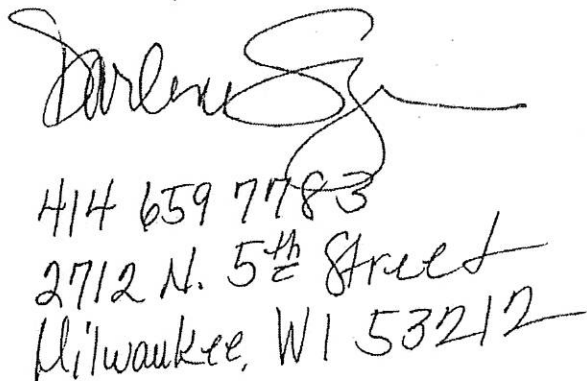 Darlene
414 659 7783
2712 N. 5th Street
Milwaukee, WI 53212